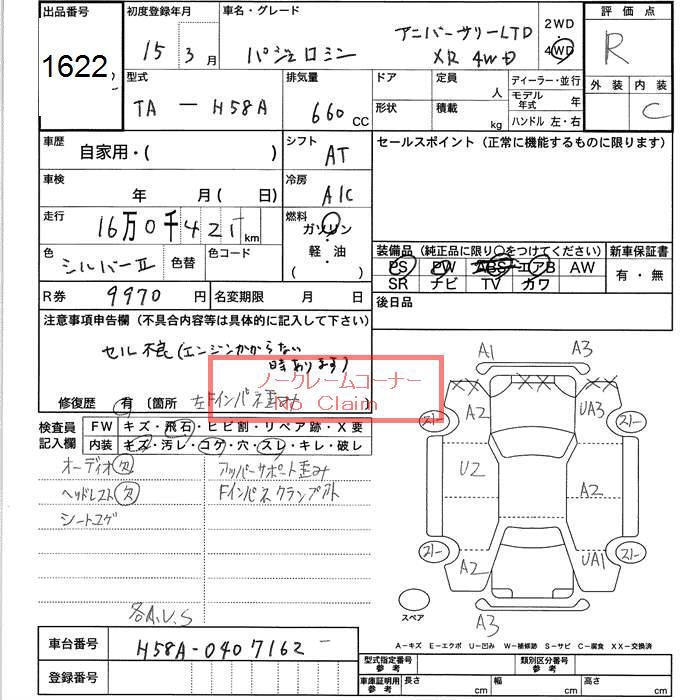 出品番号 初度登録年月 車名・グレード 評価点
1622 15年 3月 パジェロミニ アニバーサリーLTD 2WD
XR 4WD 4WD R
型式 排気量 ドア 定員 ディーラー・並行 外装 内装
人 モデル年式 年
TA - H58A 660 CC 形状 積載 kg ハンドル 左・右 C
車歴 自家用・( ) シフト AT セールスポイント (正常に機能するものに限ります)
車検 年 月( 日) 冷房 A/C
走行 16万0千42 km 燃料 ガソリン
軽・油
( )
色 シルバーII 色替 色コード 装備品 (純正品に限り○をつけてください) 新車保証書
PS PW ABS エアB AW 有・無
SR ナビ TV カワ
R券 9970円 名変期限 月 日 後日品
注意事項申告欄 (不具合内容等は具体的に記入して下さい)
セル不良(エンジンかからない
時あります)
ノークレームコーナー
No Claim
修復歴 有 (箇所 左Fインパネ歪み
検査員記入欄 FW キズ・飛石・ヒビ割・リペア跡・X要
内装 キズ・汚レ・コゲ・穴・スレ・キレ・破レ
オーディオ欠 アッパーサポート歪み
ヘッドレスト欠 Fインパネクランプ跡
シートコゲ
各A.U.S
A1 A3
XX XX XX
A2 UA3
スレ スレ
U2 A2
スレ スレ
A2 UA1
スペア A3
A-キズ E-エクボ U-凹み W-補修跡 S-サビ C-腐食 XX-交換済
車台番号 H58A-0407162
登録番号
型式指定番号 参考 類別区分番号 参考
車庫証明用 参考 長さ cm 幅 cm 高さ cm